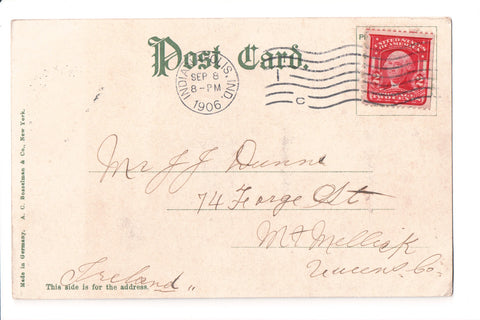 Post Card.
INDIANAPOLIS, IND.
SEP 8
8-PM
1906
C
UNITED STATES
OF AMERICA
2 2
TWO CENTS
Mr J J Dunne
74 Forge St.
Mt Mellick
Queens Co.
Ireland
This side is for the address.
Made in Germany. A. C. Bosselman & Co., New York.